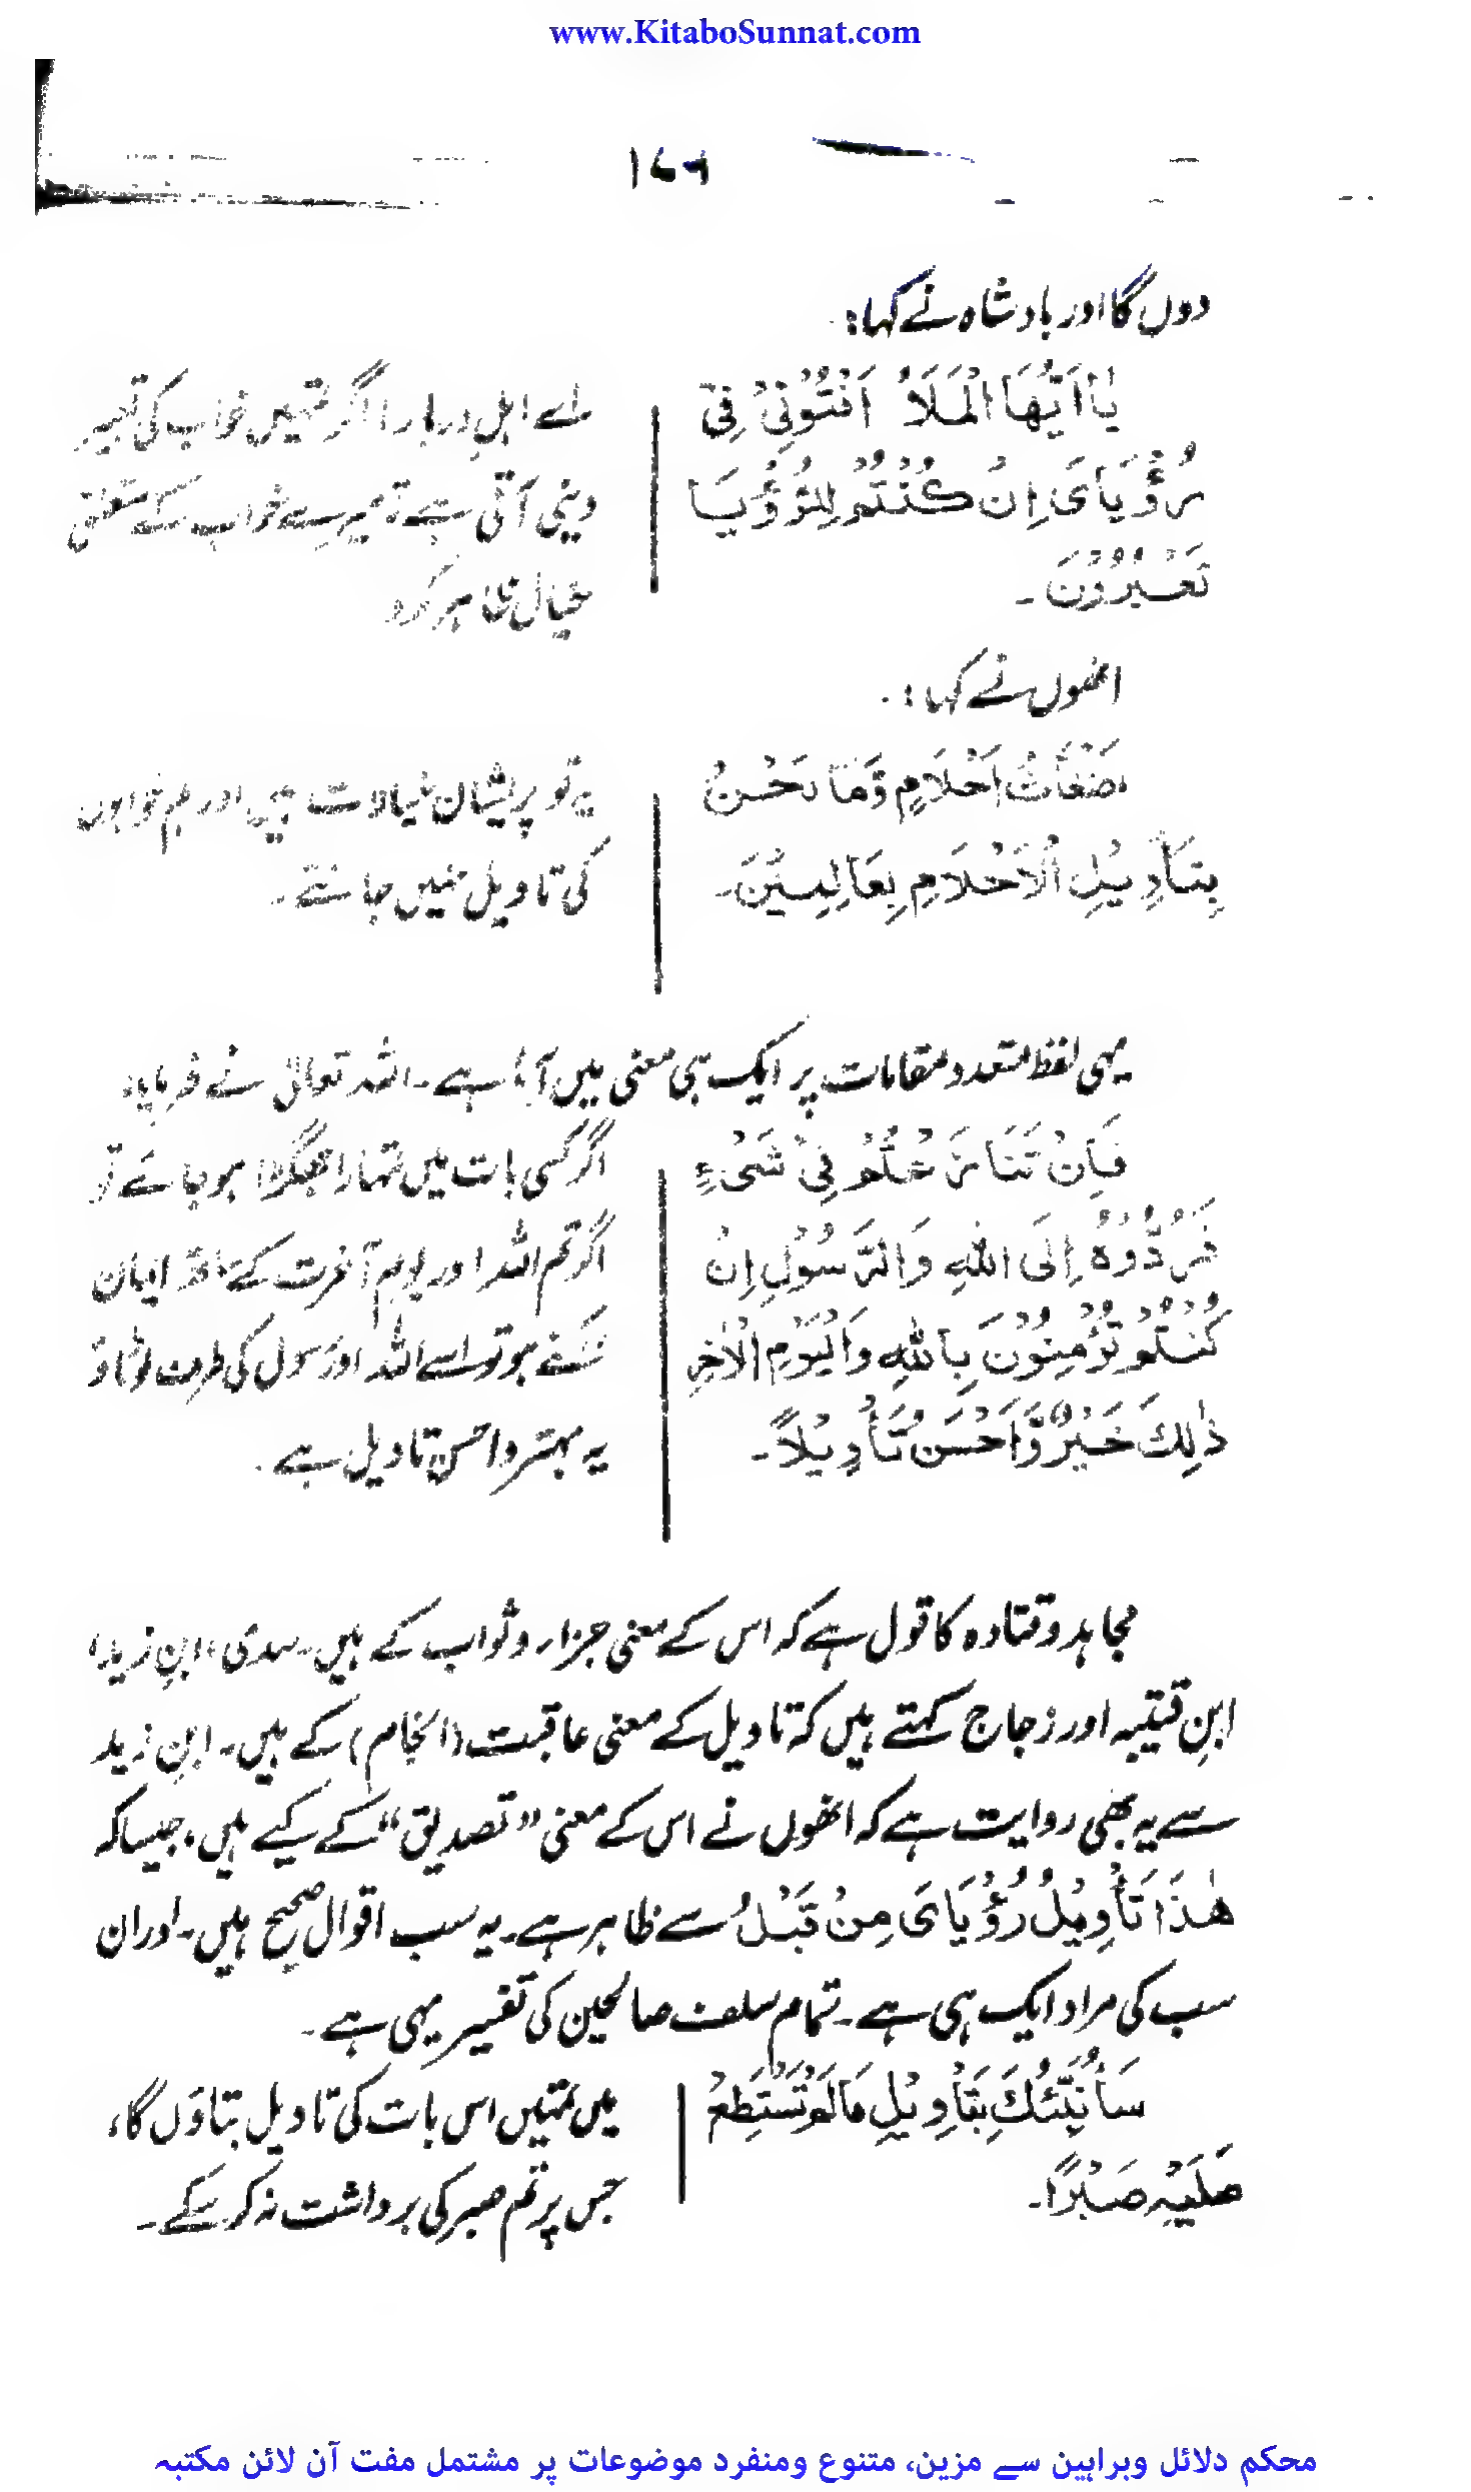 www.KitaboSunnat.com
۱۷۶
دوں گا اور بادشاہ نے کہا:
يٰۤاَيُّهَا الْمَلَاُ اَفْتُوْنِيْ فِيْ
رُؤْيَايَ اِنْ كُنْتُمْ لِلرُّؤْيَا
تَعْبُرُوْنَ۔
اے اہلِ دربار! اگر تمہیں خواب کی تعبیر
دینی آتی ہے تو میرے خواب کے متعلق
خیال ظاہر کرو
انھوں نے کہا:
اَضْغَاثُ اَحْلَامٍ وَّمَا نَحْنُ
بِتَأْوِيْلِ الْاَحْلَامِ بِعَالِمِيْنَ۔
یہ تو پریشان خیالات ہیں اور ہم خوابوں
کی تاویل نہیں جانتے۔
یہی لفظ متعدد مقامات پر ایک ہی معنی میں آیا ہے۔ اللہ تعالیٰ نے فرمایا:
فَاِنْ تَنَازَعْتُمْ فِيْ شَيْءٍ
فَرُدُّوْهُ اِلَى اللّٰهِ وَالرَّسُوْلِ اِنْ
كُنْتُمْ تُؤْمِنُوْنَ بِاللّٰهِ وَالْيَوْمِ الْاٰخِرِ
ذٰلِكَ خَيْرٌ وَّاَحْسَنُ تَأْوِيْلًا۔
اگر کسی بات میں تمہارا جھگڑا ہو جائے تو
اگر تم اللہ اور یومِ آخرت کے ساتھ ایمان
رکھتے ہو تو اسے اللہ اور رسول کی طرف لوٹاؤ
یہ بہتر و احسن تاویل ہے۔
مجاہد و قتادہ کا قول ہے کہ اس کے معنی جزاء و ثواب کے ہیں۔ سدی، ابنِ زید،
ابنِ قتیبہ اور زجاج کہتے ہیں کہ تاویل کے معنی عاقبت (انجام) کے ہیں۔ ابنِ زید
سے یہ بھی روایت ہے کہ انھوں نے اس کے معنی "تصدیق" کے کیے ہیں، جیسا کہ
هٰذَا تَأْوِيْلُ رُؤْيَايَ مِنْ قَبْلُ سے ظاہر ہے۔ یہ سب اقوال صحیح ہیں۔ اور ان
سب کی مراد ایک ہی ہے۔ تمام سلف صالحین کی تفسیر یہی ہے۔
سَأُنَبِّئُكَ بِتَأْوِيْلِ مَا لَمْ تَسْتَطِعْ
عَلَيْهِ صَبْرًا۔
میں تمہیں اس بات کی تاویل بتاؤں گا،
جس پر تم صبر کی برداشت نہ کر سکے۔
محکم دلائل وبراہین سے مزین، متنوع ومنفرد موضوعات پر مشتمل مفت آن لائن مکتبہ